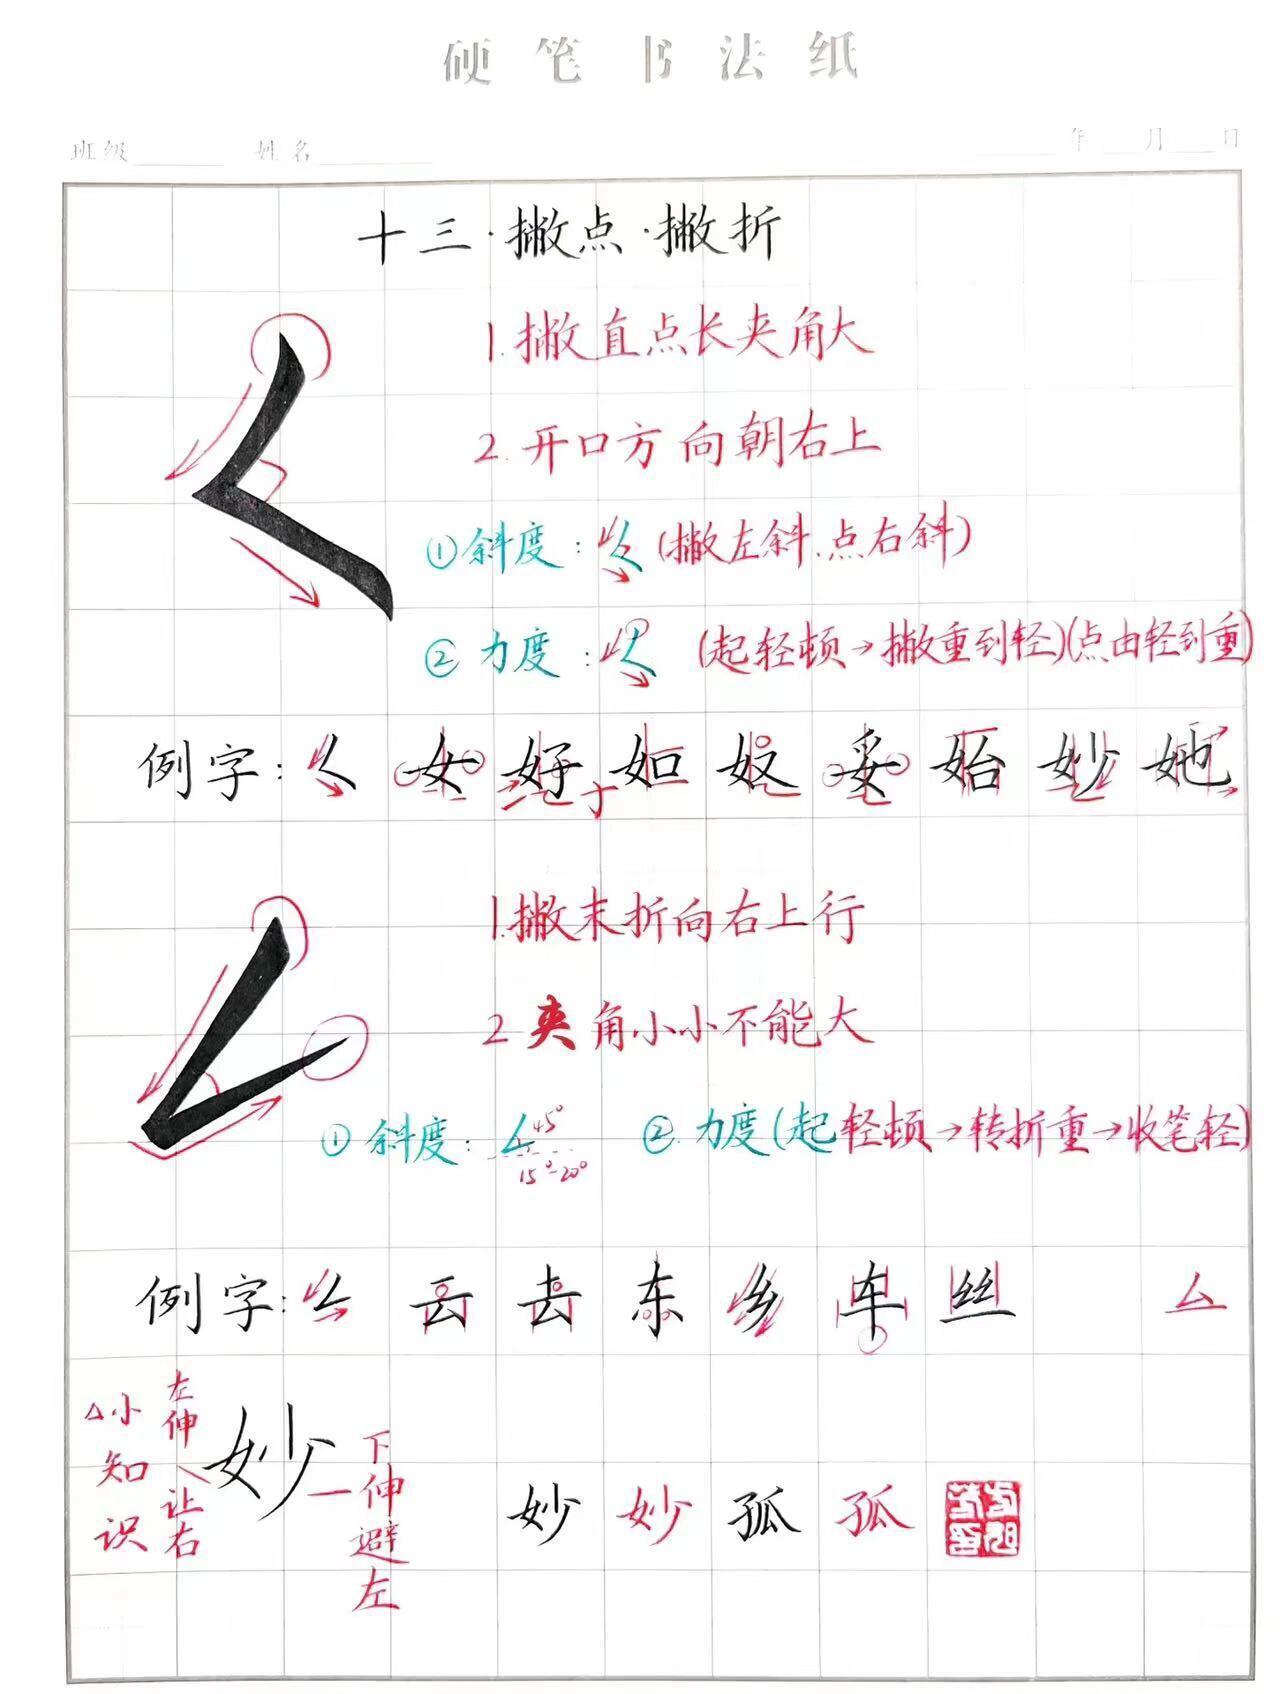 硬笔书法纸
班级 姓名 年 月 日
十三·撇点·撇折
1.撇直点长夹角大
2.开口方向朝右上
①斜度:𡿨(撇左斜.点右斜)
②力度:𡿨(起轻顿→撇重到轻)(点由轻到重)
例字:𡿨 女 好 如 奴 妥 始 妙 她
1.撇末折向右上行
2夹角小小不能大
①斜度:𠃋45° 15°-20° ②.力度(起轻顿→转折重→收笔轻)
例字:𠃋 云 去 东 乡 车 丝 厶
△小知识
左伸让右
妙
下伸避左
妙 妙 孤 孤